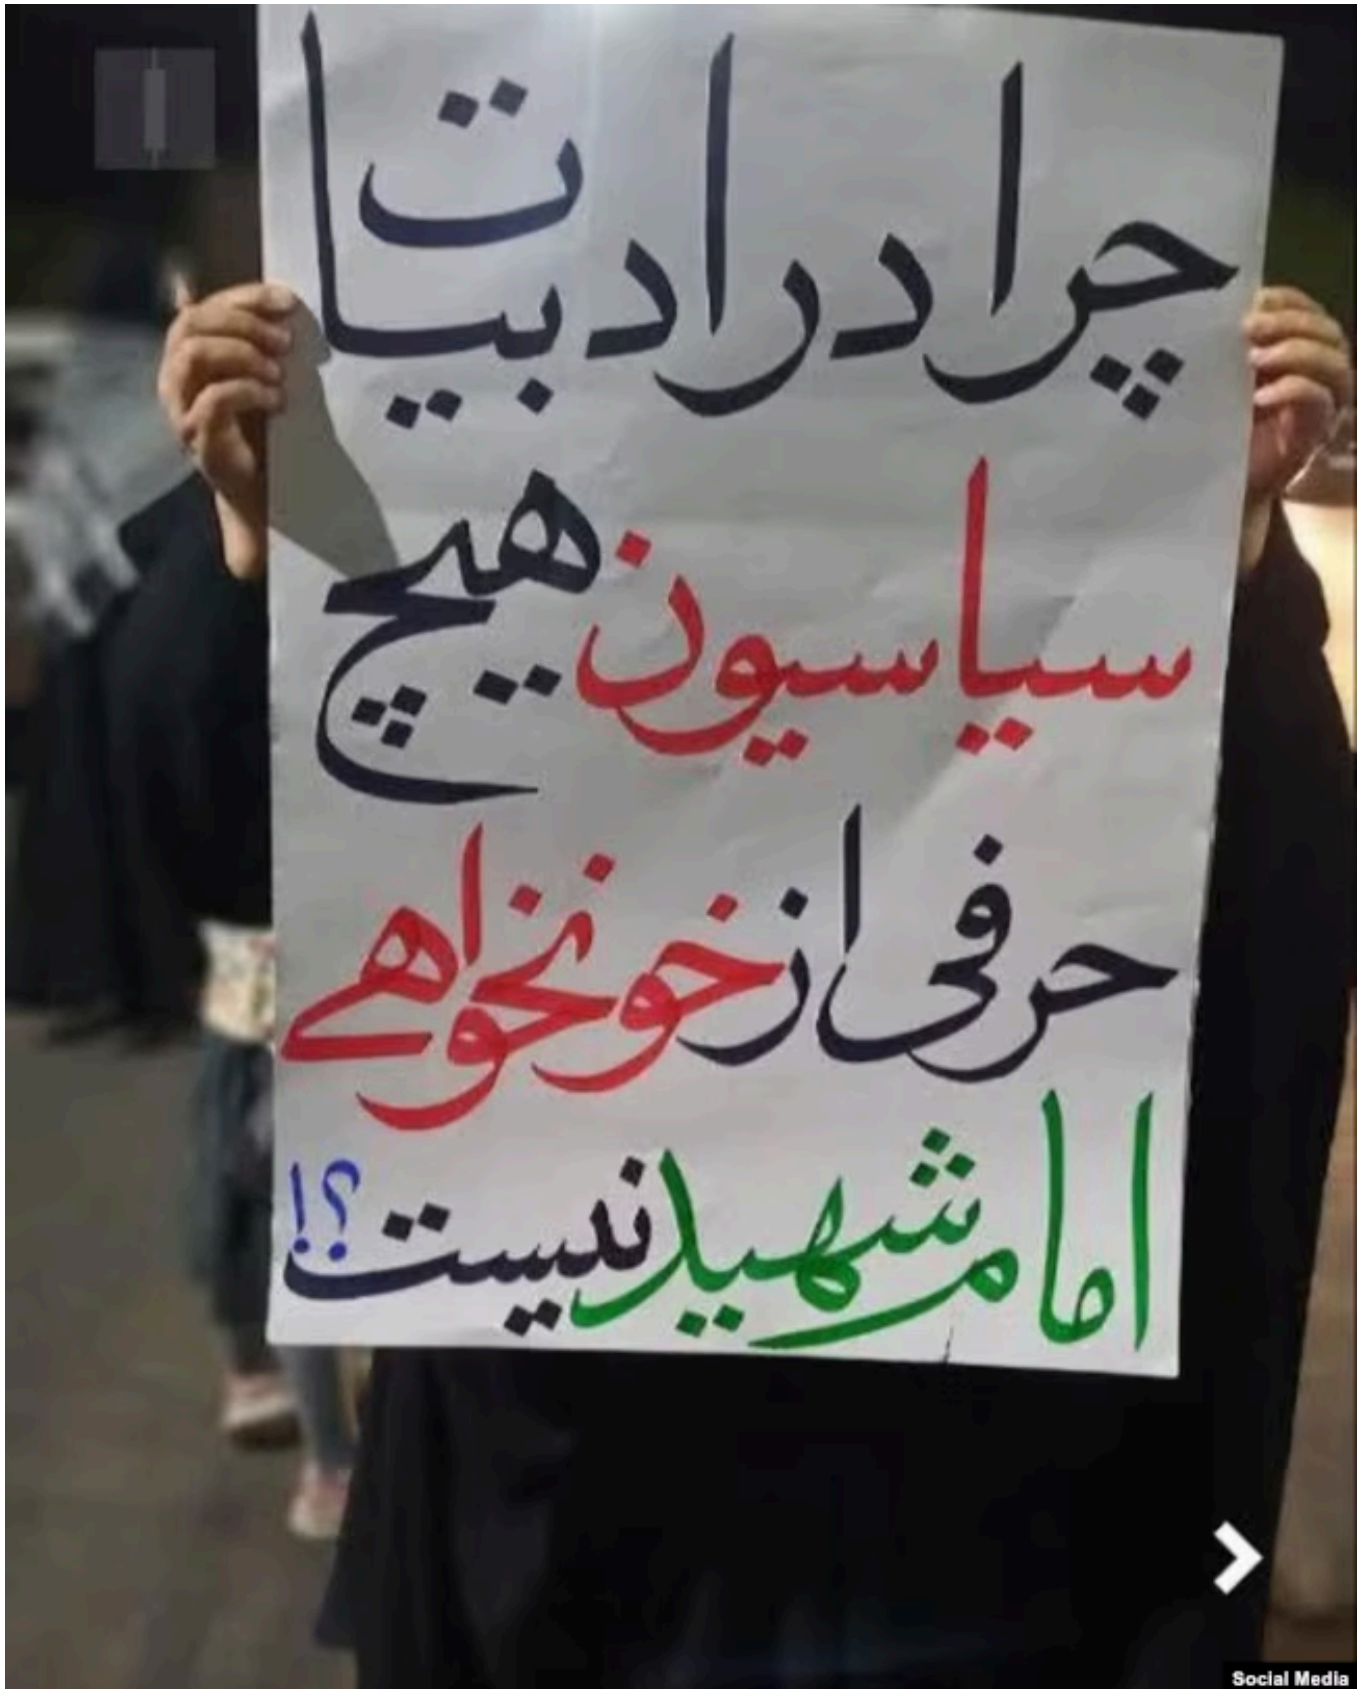 چرا در ادبیات
سیاسیون هیچ
حرفی از خونخواهی
امام شهید نیست؟!
Social Media